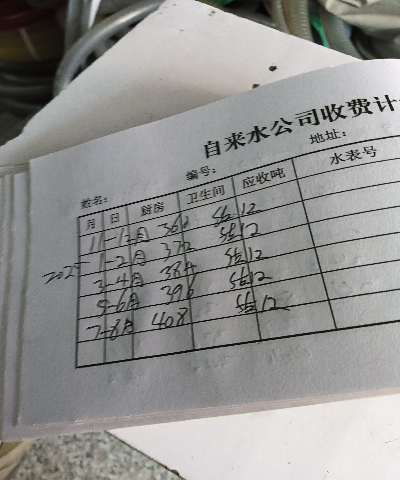 自来水公司收费计
姓名： 编号： 地址：
月 日 厨房 卫生间 应收吨 水表号
11-12月 360 12
2025 1-2月 372 12
3-4月 384 12
5-6月 396 12
7-8月 408 12